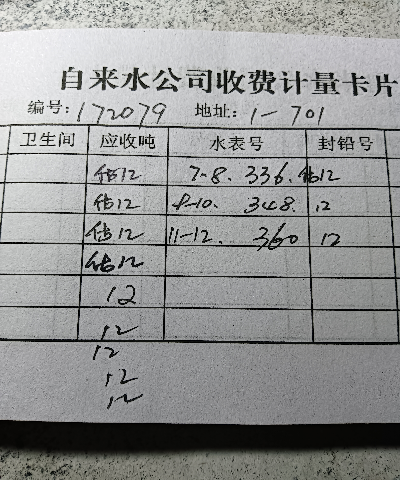 自来水公司收费计量卡片
编号: 172079 地址: 1-701
卫生间 应收吨 水表号 封铅号
估12 7-8. 336. 估12
估12 9-10. 348. 12
估12 11-12. 360 12
估12
12
12
12
12
12